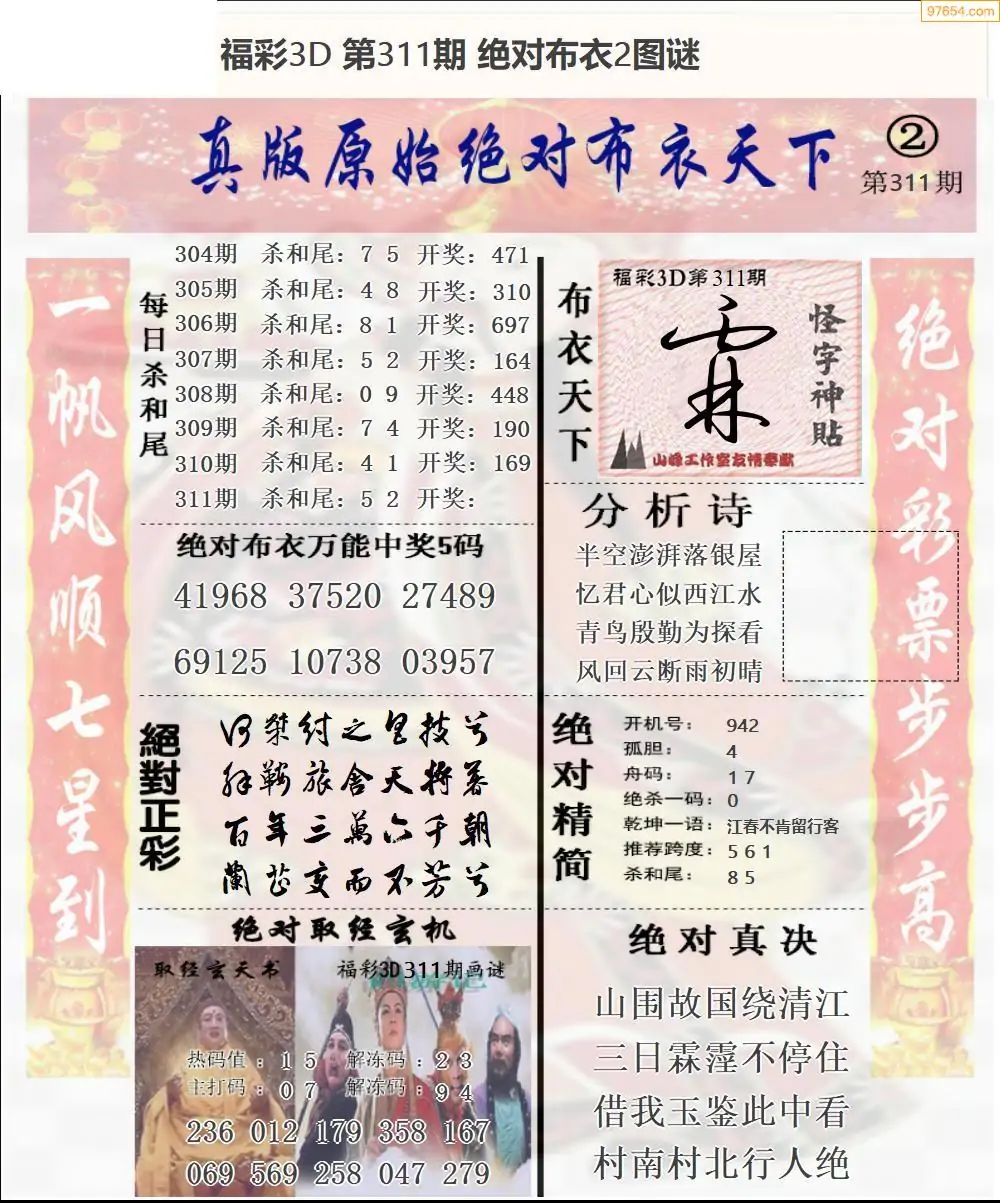 97654.com
福彩3D 第311期 绝对布衣2图谜
真版原始绝对布衣天下
②
第311期
一帆风顺七星到
每日杀和尾
304期 杀和尾：7 5 开奖：471
305期 杀和尾：4 8 开奖：310
306期 杀和尾：8 1 开奖：697
307期 杀和尾：5 2 开奖：164
308期 杀和尾：0 9 开奖：448
309期 杀和尾：7 4 开奖：190
310期 杀和尾：4 1 开奖：169
311期 杀和尾：5 2 开奖：
绝对布衣万能中奖5码
41968 37520 27489
69125 10738 03957
絕對正彩
百年三萬六千朝
蘭芷变而不芳兮
绝对取经玄机
取经玄天书
福彩3D311期画谜
热码值：1 5 解冻码：2 3
主打码：0 7 解冻码：9 4
236 012 179 358 167
069 569 258 047 279
布衣天下
福彩3D第311期
霖
怪字神貼
山峰工作室友情奉献
分析诗
半空澎湃落银屋
忆君心似西江水
青鸟殷勤为探看
风回云断雨初晴
绝对精简
开机号：942
孤胆：4
舟码：1 7
绝杀一码：0
乾坤一语：江春不肯留行客
推荐跨度：5 6 1
杀和尾：8 5
绝对真决
山围故国绕清江
三日霖霪不停住
借我玉鉴此中看
村南村北行人绝
绝对彩票步步高